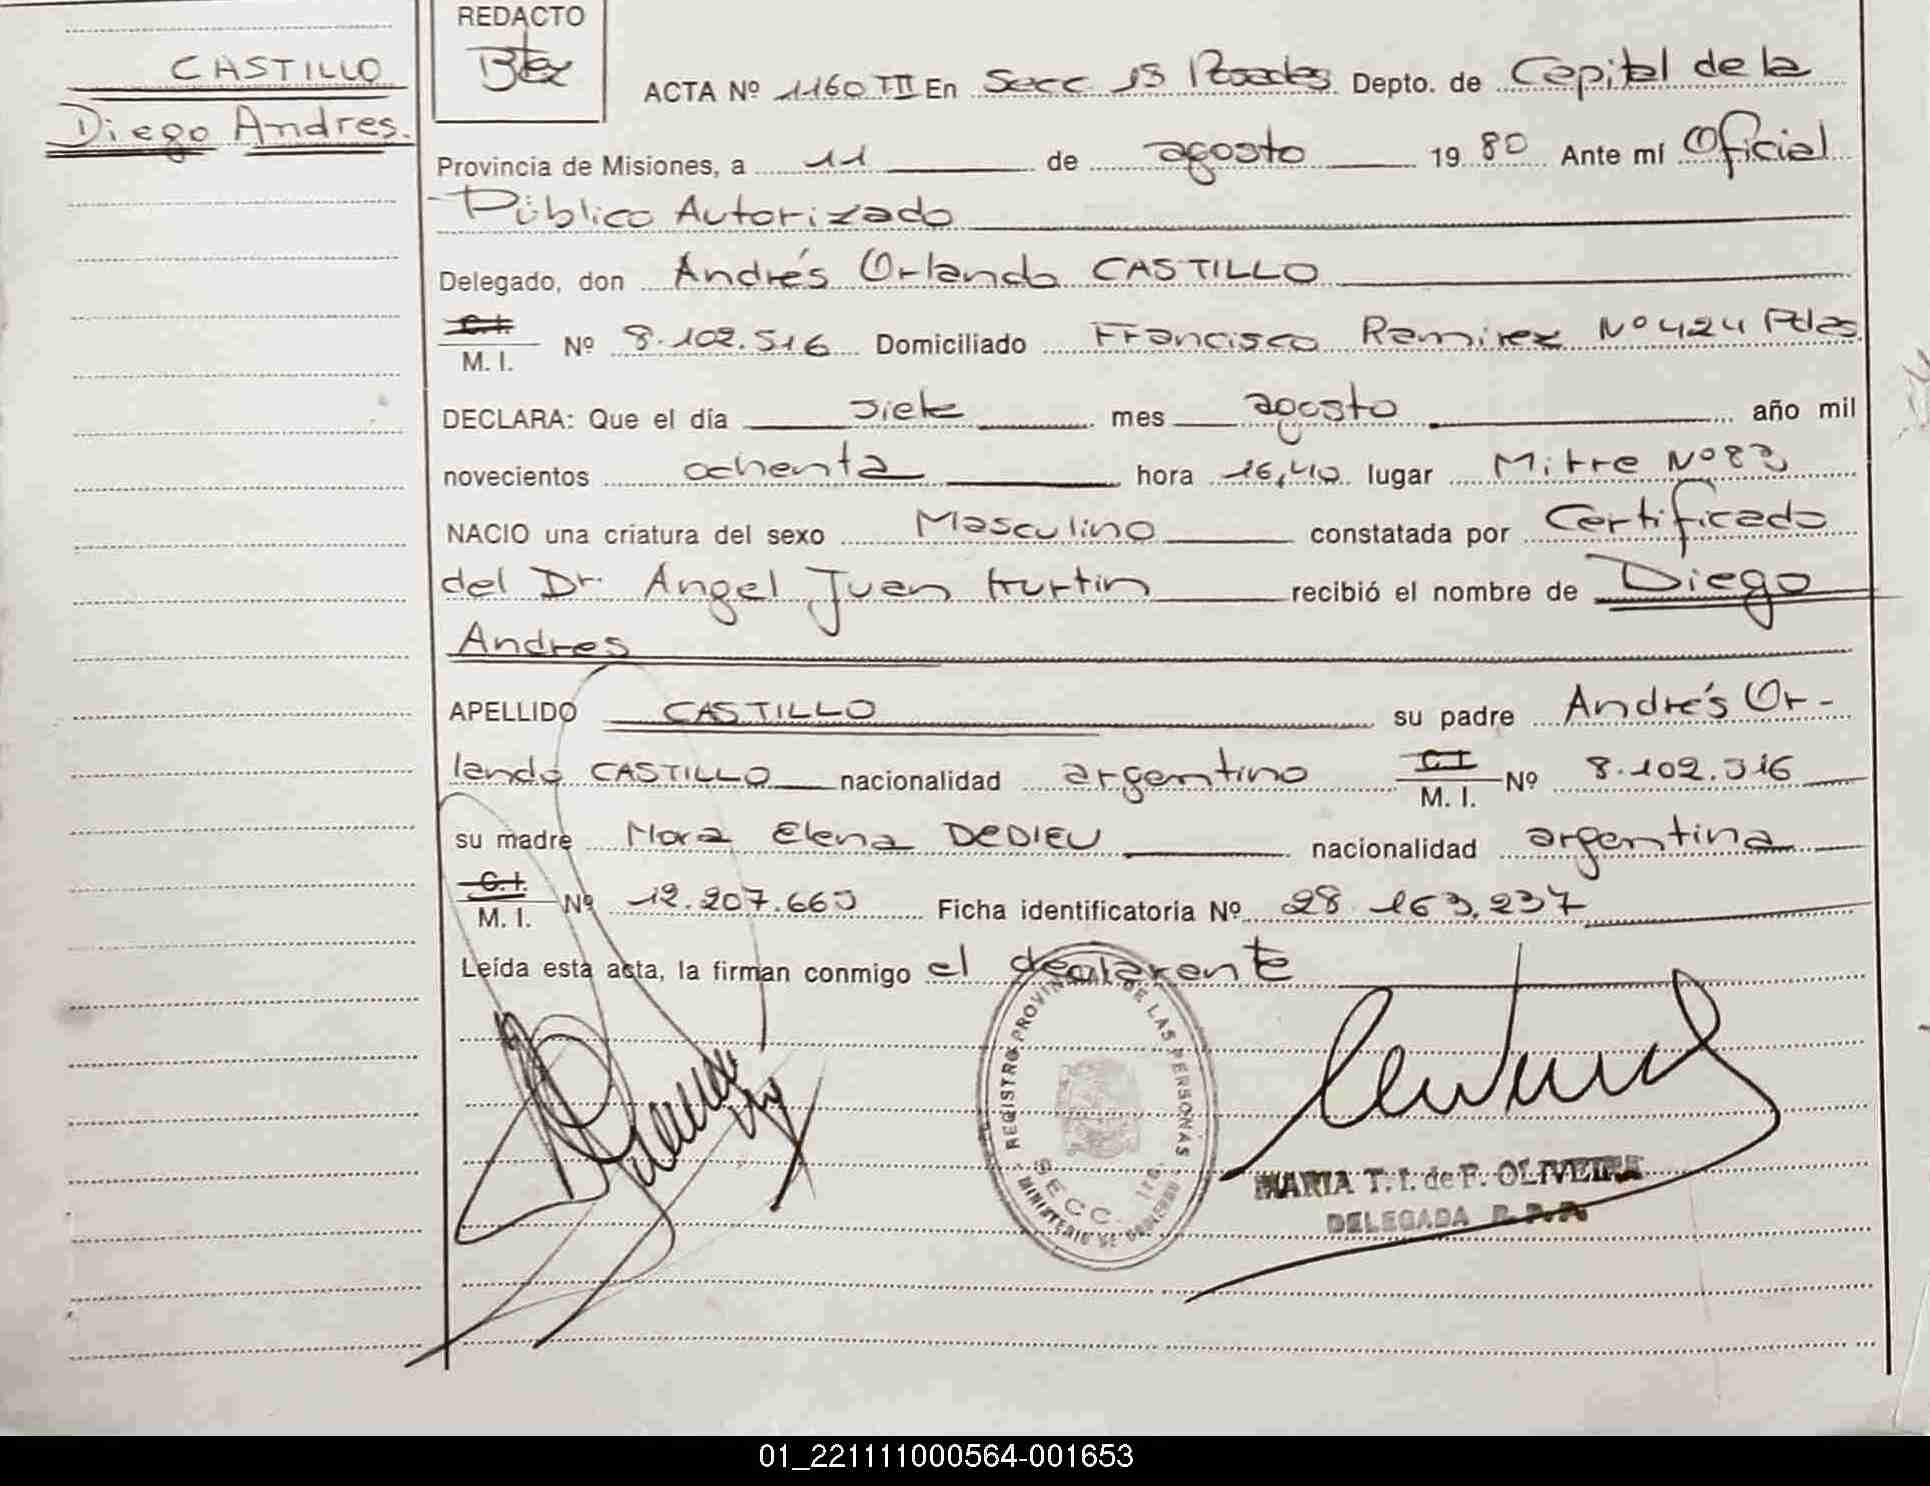 CASTILLO
Diego Andres.
REDACTO
ACTA Nº 1160 TIII En Secc 1S Posadas Depto. de Capital de la
Provincia de Misiones, a 11 de agosto 1980 Ante mí Oficial
Público Autorizado
Delegado, don Andrés Orlando CASTILLO
C.I.
M. I. Nº 8.102.516 Domiciliado Francisco Ramirez Nº 424 Pdas.
DECLARA: Que el día siete mes agosto año mil
novecientos ochenta hora 16,40 lugar Mitre Nº 83
NACIO una criatura del sexo Masculino constatada por Certificado
del Dr. Angel Juan Hurtin recibió el nombre de Diego
Andres
APELLIDO CASTILLO su padre Andrés Or-
lando CASTILLO nacionalidad argentino C.I
M. I. Nº 8.102.516
su madre Nora Elena DEDIEU nacionalidad argentina
C.I.
M. I. Nº 12.207.665 Ficha identificatoria Nº 28.163.237
Leída esta acta, la firman conmigo el declarante
REGISTRO PROVINCIAL DE LAS PERSONAS
SECC.
MINISTERIO DE GOBIERNO
MARIA T. I. de F. OLIVEIRA
DELEGADA R. P. P.
01_221111000564-001653